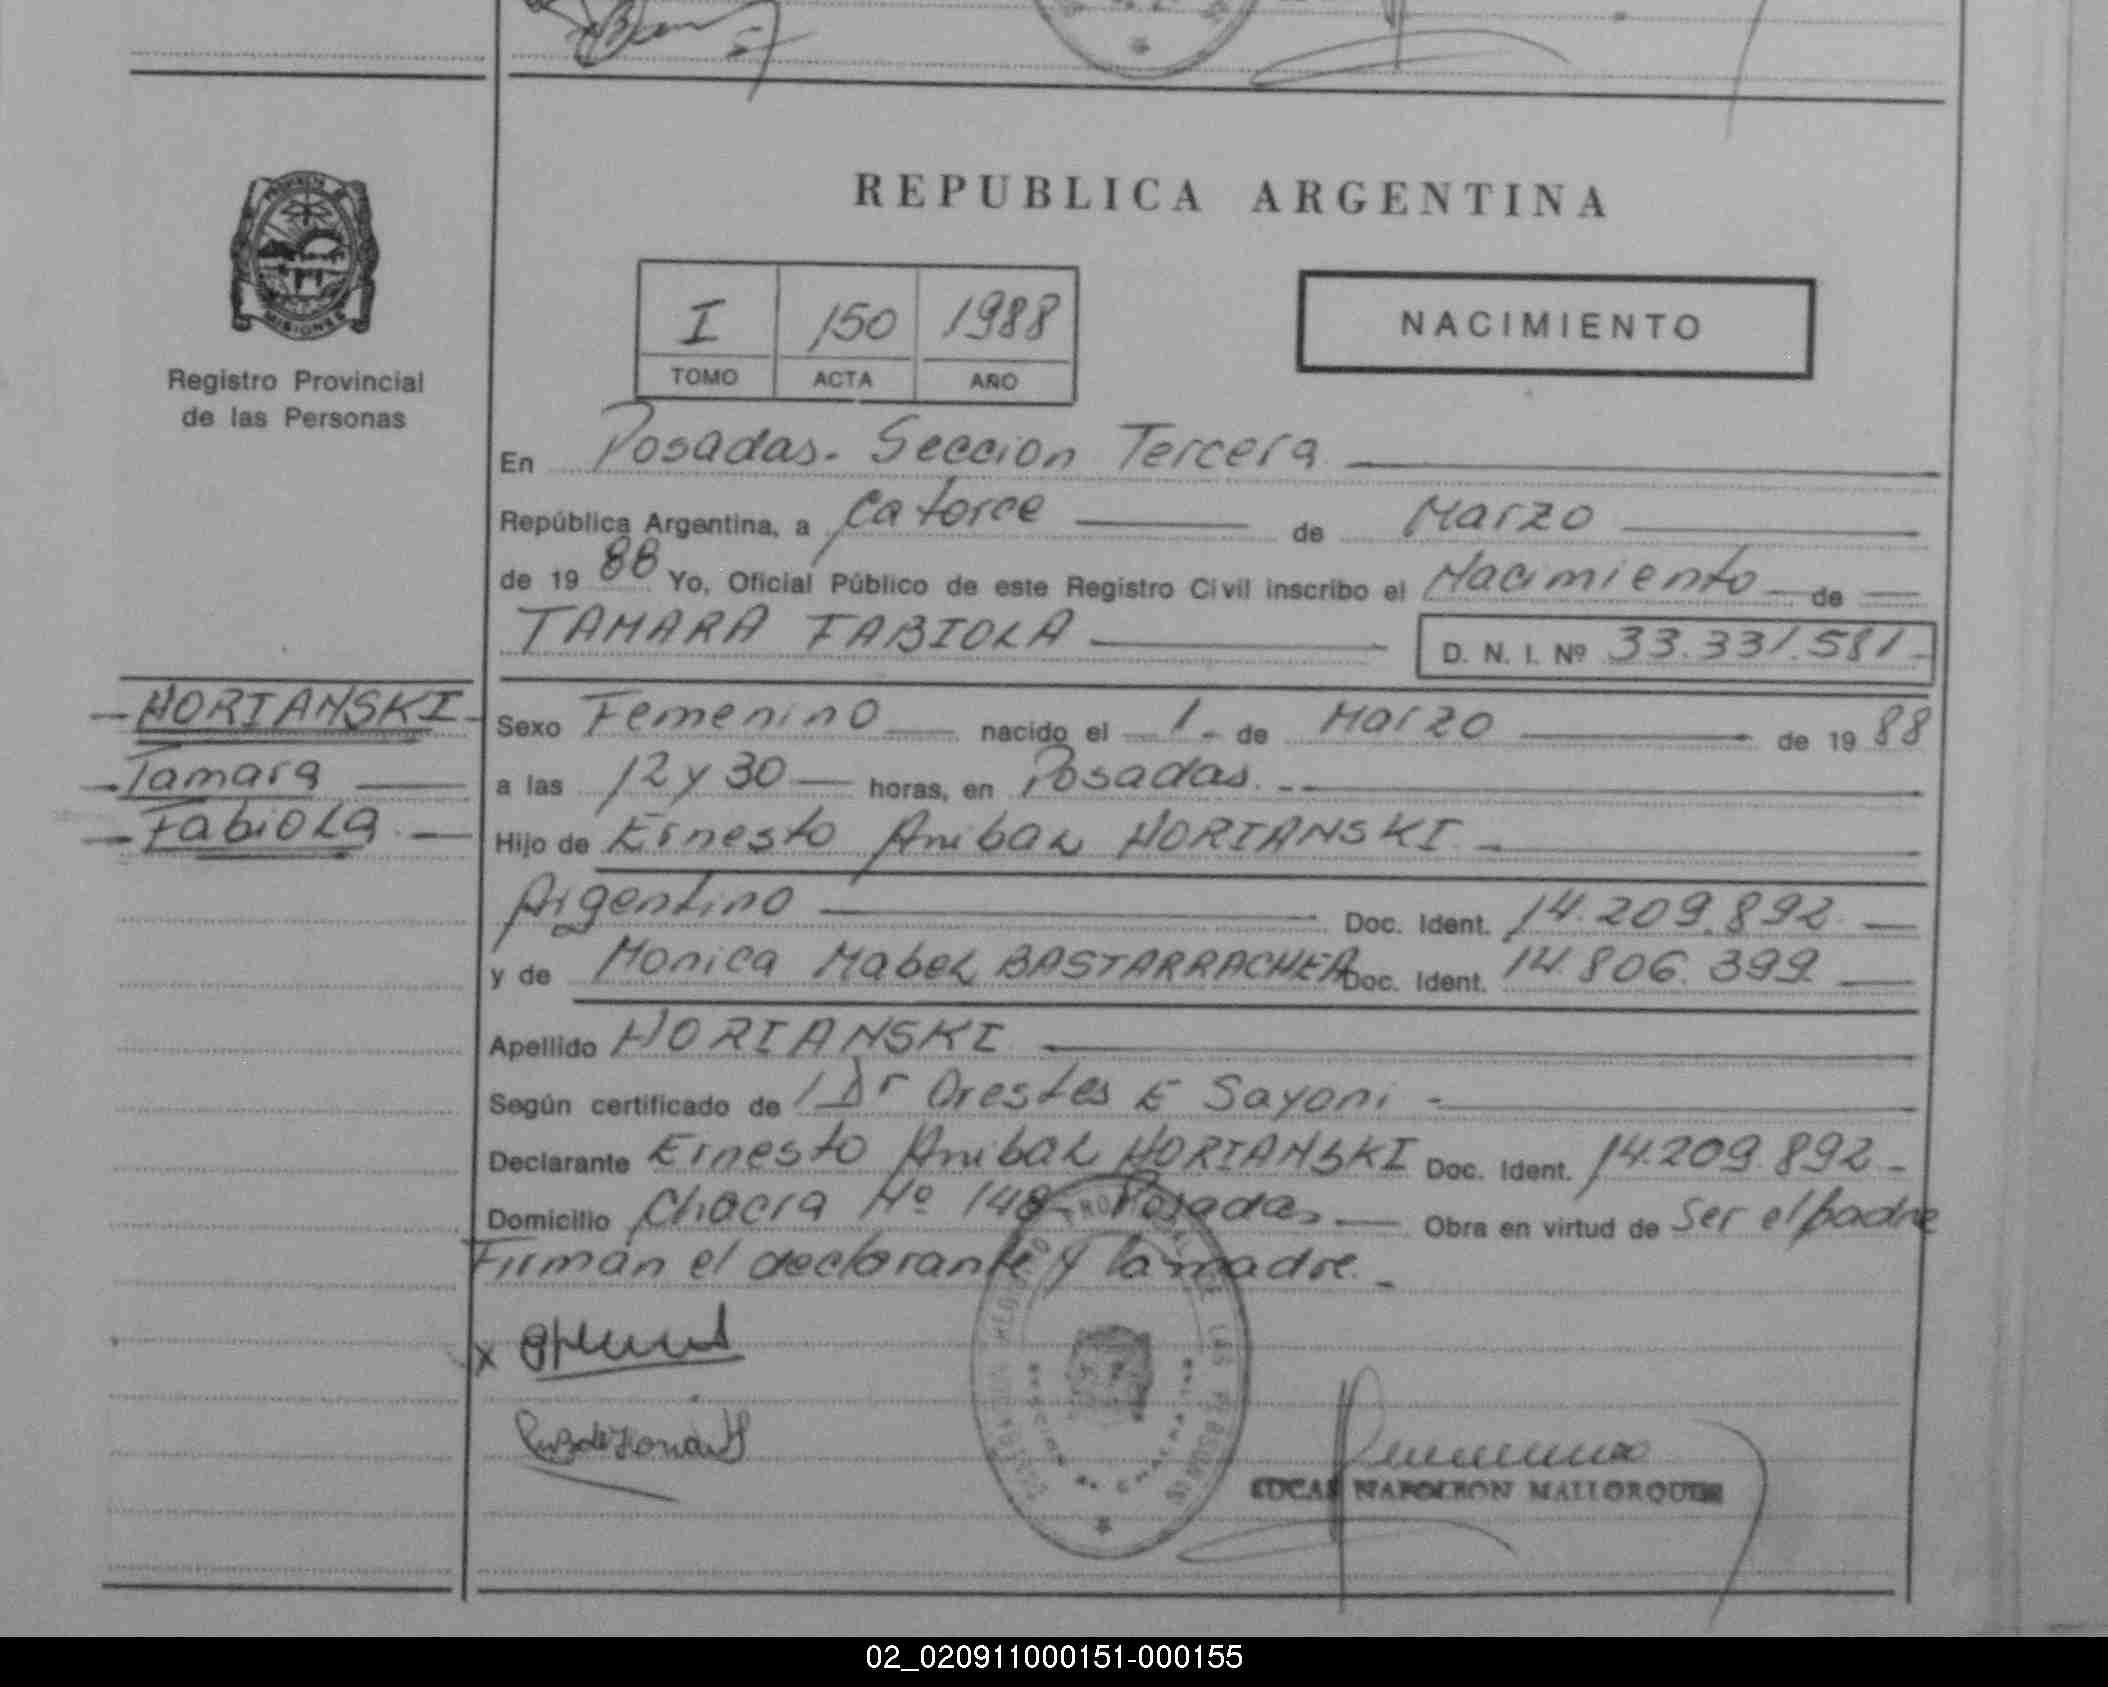 REPUBLICA ARGENTINA
I 150 1988
TOMO ACTA AÑO
NACIMIENTO
MISIONES
Registro Provincial
de las Personas
En Posadas. Seccion Tercera
República Argentina, a Catorce de Marzo
de 19 88 Yo, Oficial Público de este Registro Civil inscribo el Nacimiento de
TAMARA FABIOLA D. N. I. Nº 33.331.581
HORIANSKI
Tamara
Fabiola
Sexo Femenino nacido el 1 de Marzo de 19 88
a las 12 y 30 horas, en Posadas.
Hijo de Ernesto Anibal HORIANSKI
Argentino Doc. Ident. 14.209.892
y de Monica Mabel BASTARRACHEA Doc. Ident. 14.806.399
Apellido HORIANSKI
Según certificado de Dr Orestes E Sayoni
Declarante Ernesto Anibal HORIANSKI Doc. Ident. 14.209.892
Domicilio Chacra Nº 148 Posadas Obra en virtud de Ser el padre
Firman el declarante y la madre.
NAPOLEON MALLORQUIN
02_020911000151-000155